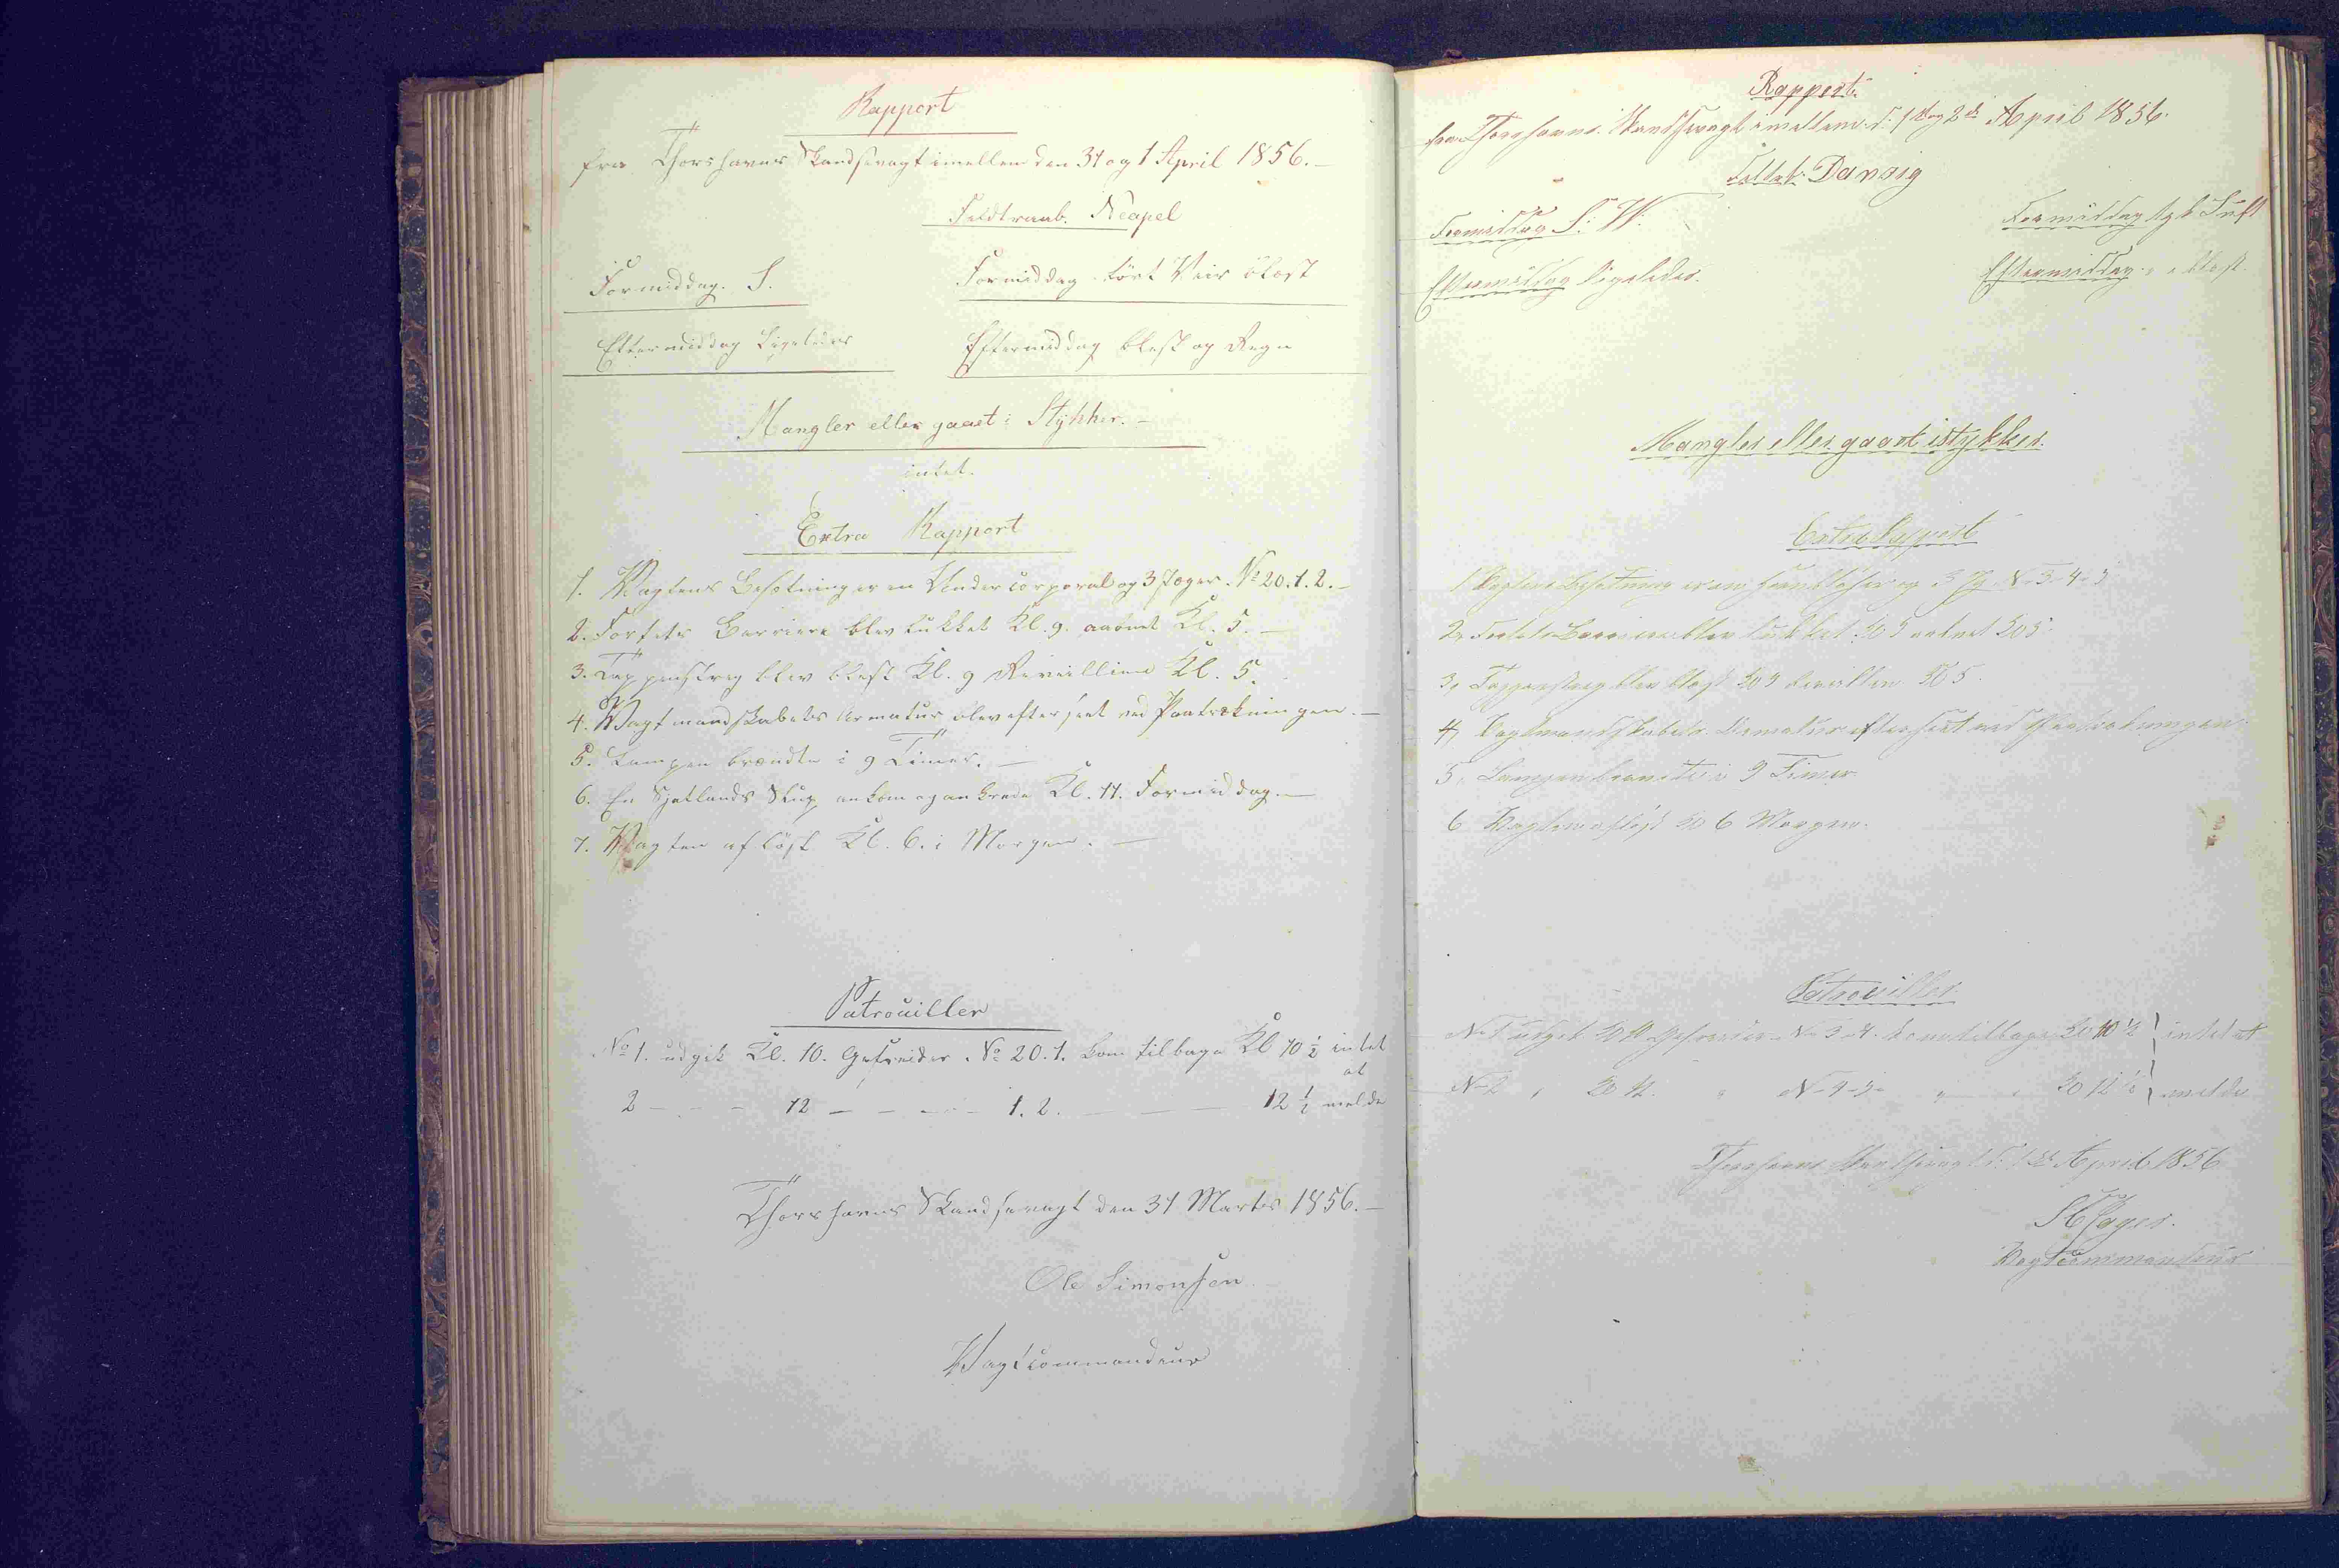 Rapport
fra Thorshavns Skandsevagt imellem den 31 og 1 April 1856.
Feldtraab. Neapel
Formiddag. S.
Formiddag tört Veir blæst
Eftermiddag Ligeledes
Eftermiddag blæst og Regn
Mangler eller gaaet i Stykker.
intet.
Extra Rapport
1. Vagtens Besætning er en Undercorporal og 3 Jæger. No 20. 1. 2.
2. Fortets Barriere blev lukket Kl. 9. aabnet Kl. 5.
3. Tappenstreg blev blæst Kl. 9 Reveillien Kl. 5.
4. Vagtmandskabets Armatur blev efterseet ved Paatrækningen.
5. Lampen brændte i 9 Timer.
6. En Sjetlands Slup ankom og ankrede Kl. 11. Formiddag.
7. Vagten aflöst Kl. 6. i Morgen.
Patrouiller
No 1. udgik Kl. 10. Gefreider No 20. 1. kom tilbage Kl 10 ½ intet
at
2 - - - 12 - - - - 1. 2. - - - 12 ½ melde
Thorshavns Skandsevagt den 31 Marts 1856.
Ole Simonsen
Vagtcommandeur
Rapport
fra Thorshavns Skandsevagt imellem d. 1ste og 2den April 1856.
Feltr. Danzig
Formiddag S: W.
Formiddag tyk Luft
Eftermiddag ligeledes.
Eftermiddag " blæst.
Mangler eller gaaet istykker.
Extra Rapport
1 Vagtens Besætning er en Hornblæser og 3 Jg. No 3-4-5
2, Fortets Barriere blev lukket Kl 9 aabnet Kl 5.
3, Tappenstreg blev blæst Kl 9 Reveillen Kl 5.
4, Vagtmandskabets Armatur efterseet ved Paatrækningen.
5, Lampen brændte i 9 Timer
6 Vagten aflöst Kl 6 Morgen.
Patrouiller
No 1 udgik Kl 10 Gefreider No 3-4. kom tilbage Kl 10 ½ intet at
No 2 " Kl 12. " No 4-5 " " Kl 12 ½ melde
Thorshavns Skandsevagt d. 1ste April 1856
Jæger.
Vagtcommandeur